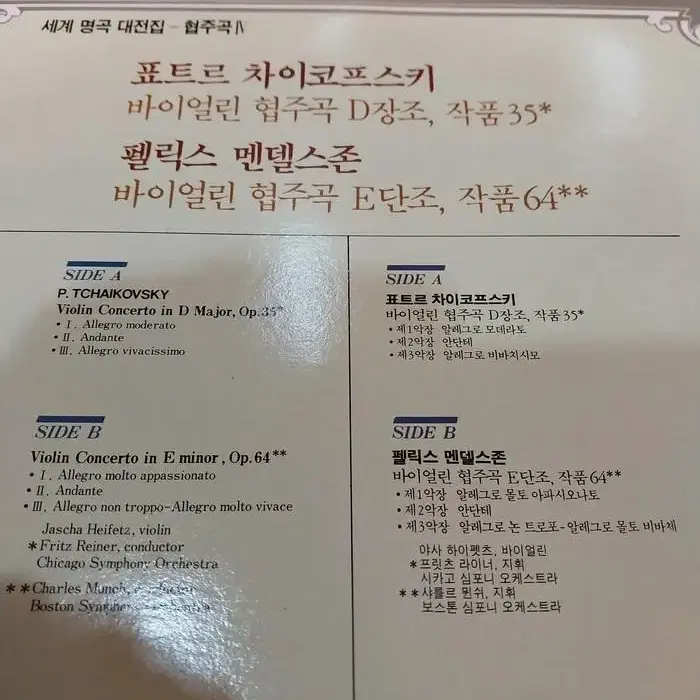 세계 명곡 대전집 - 협주곡 Ⅳ
표트르 차이코프스키
바이얼린 협주곡 D장조, 작품35*
펠릭스 멘델스존
바이얼린 협주곡 E단조, 작품64**
SIDE A
P. TCHAIKOVSKY
Violin Concerto in D Major, Op.35*
• Ⅰ. Allegro moderato
• Ⅱ. Andante
• Ⅲ. Allegro vivacissimo
SIDE B
Violin Concerto in E minor, Op.64**
• Ⅰ. Allegro molto appassionato
• Ⅱ. Andante
• Ⅲ. Allegro non troppo-Allegro molto vivace
Jascha Heifetz, violin
*Fritz Reiner, conductor
Chicago Symphony Orchestra
**Charles Munch,
Boston
SIDE A
표트르 차이코프스키
바이얼린 협주곡 D장조, 작품35*
• 제1악장 알레그로 모데라토
• 제2악장 안단테
• 제3악장 알레그로 비바치시모
SIDE B
펠릭스 멘델스존
바이얼린 협주곡 E단조, 작품64**
• 제1악장 알레그로 몰토 아파시오나토
• 제2악장 안단테
• 제3악장 알레그로 논 트로포-알레그로 몰토 비바체
야사 하이펫츠, 바이얼린
*프릿츠 라이너, 지휘
시카고 심포니 오케스트라
**샤를르 뮌쉬, 지휘
보스톤 심포니 오케스트라